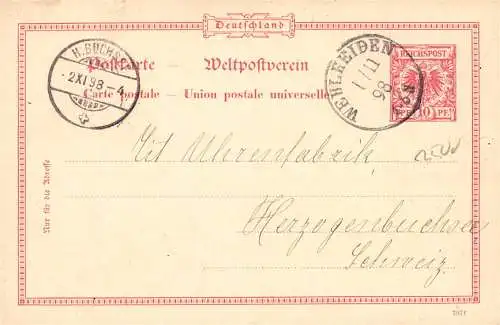 Deutschland
Postkarte – Weltpostverein
Carte postale – Union postale universelle
H. BUCHS
2XI 98 – 4
WEHLHEIDEN
1/11
98
REICHSPOST
10 PF.
2500
Nur für die Adresse
Tit Uhrenfabrik
Herzogenbuchsee
Schweiz